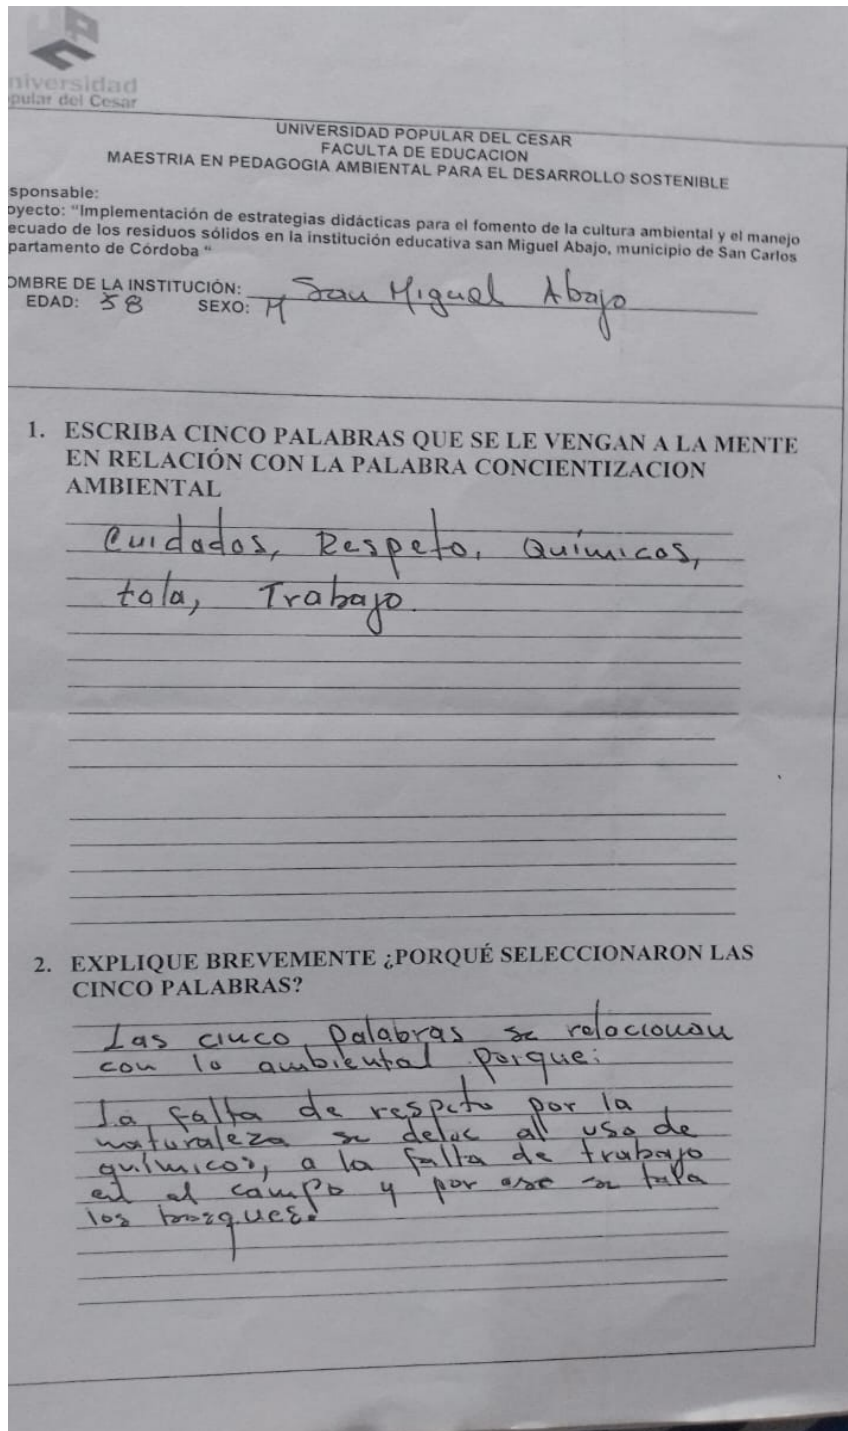 UPC
niversidad
pular del Cesar
UNIVERSIDAD POPULAR DEL CESAR
FACULTA DE EDUCACION
MAESTRIA EN PEDAGOGIA AMBIENTAL PARA EL DESARROLLO SOSTENIBLE
sponsable:
oyecto: “Implementación de estrategias didácticas para el fomento de la cultura ambiental y el manejo
ecuado de los residuos sólidos en la institución educativa san Miguel Abajo, municipio de San Carlos
partamento de Córdoba “
OMBRE DE LA INSTITUCIÓN: San Miguel Abajo
EDAD: 58 SEXO: M
1. ESCRIBA CINCO PALABRAS QUE SE LE VENGAN A LA MENTE
EN RELACIÓN CON LA PALABRA CONCIENTIZACION
AMBIENTAL
Cuidados, Respeto, Químicos,
tala, Trabajo.
2. EXPLIQUE BREVEMENTE ¿PORQUÉ SELECCIONARON LAS
CINCO PALABRAS?
Las cinco palabras se relacionan
con lo ambiental porque:
La falta de respeto por la
naturaleza se debe al uso de
químicos, a la falta de trabajo
en el campo y por ese se tala
los bosques.